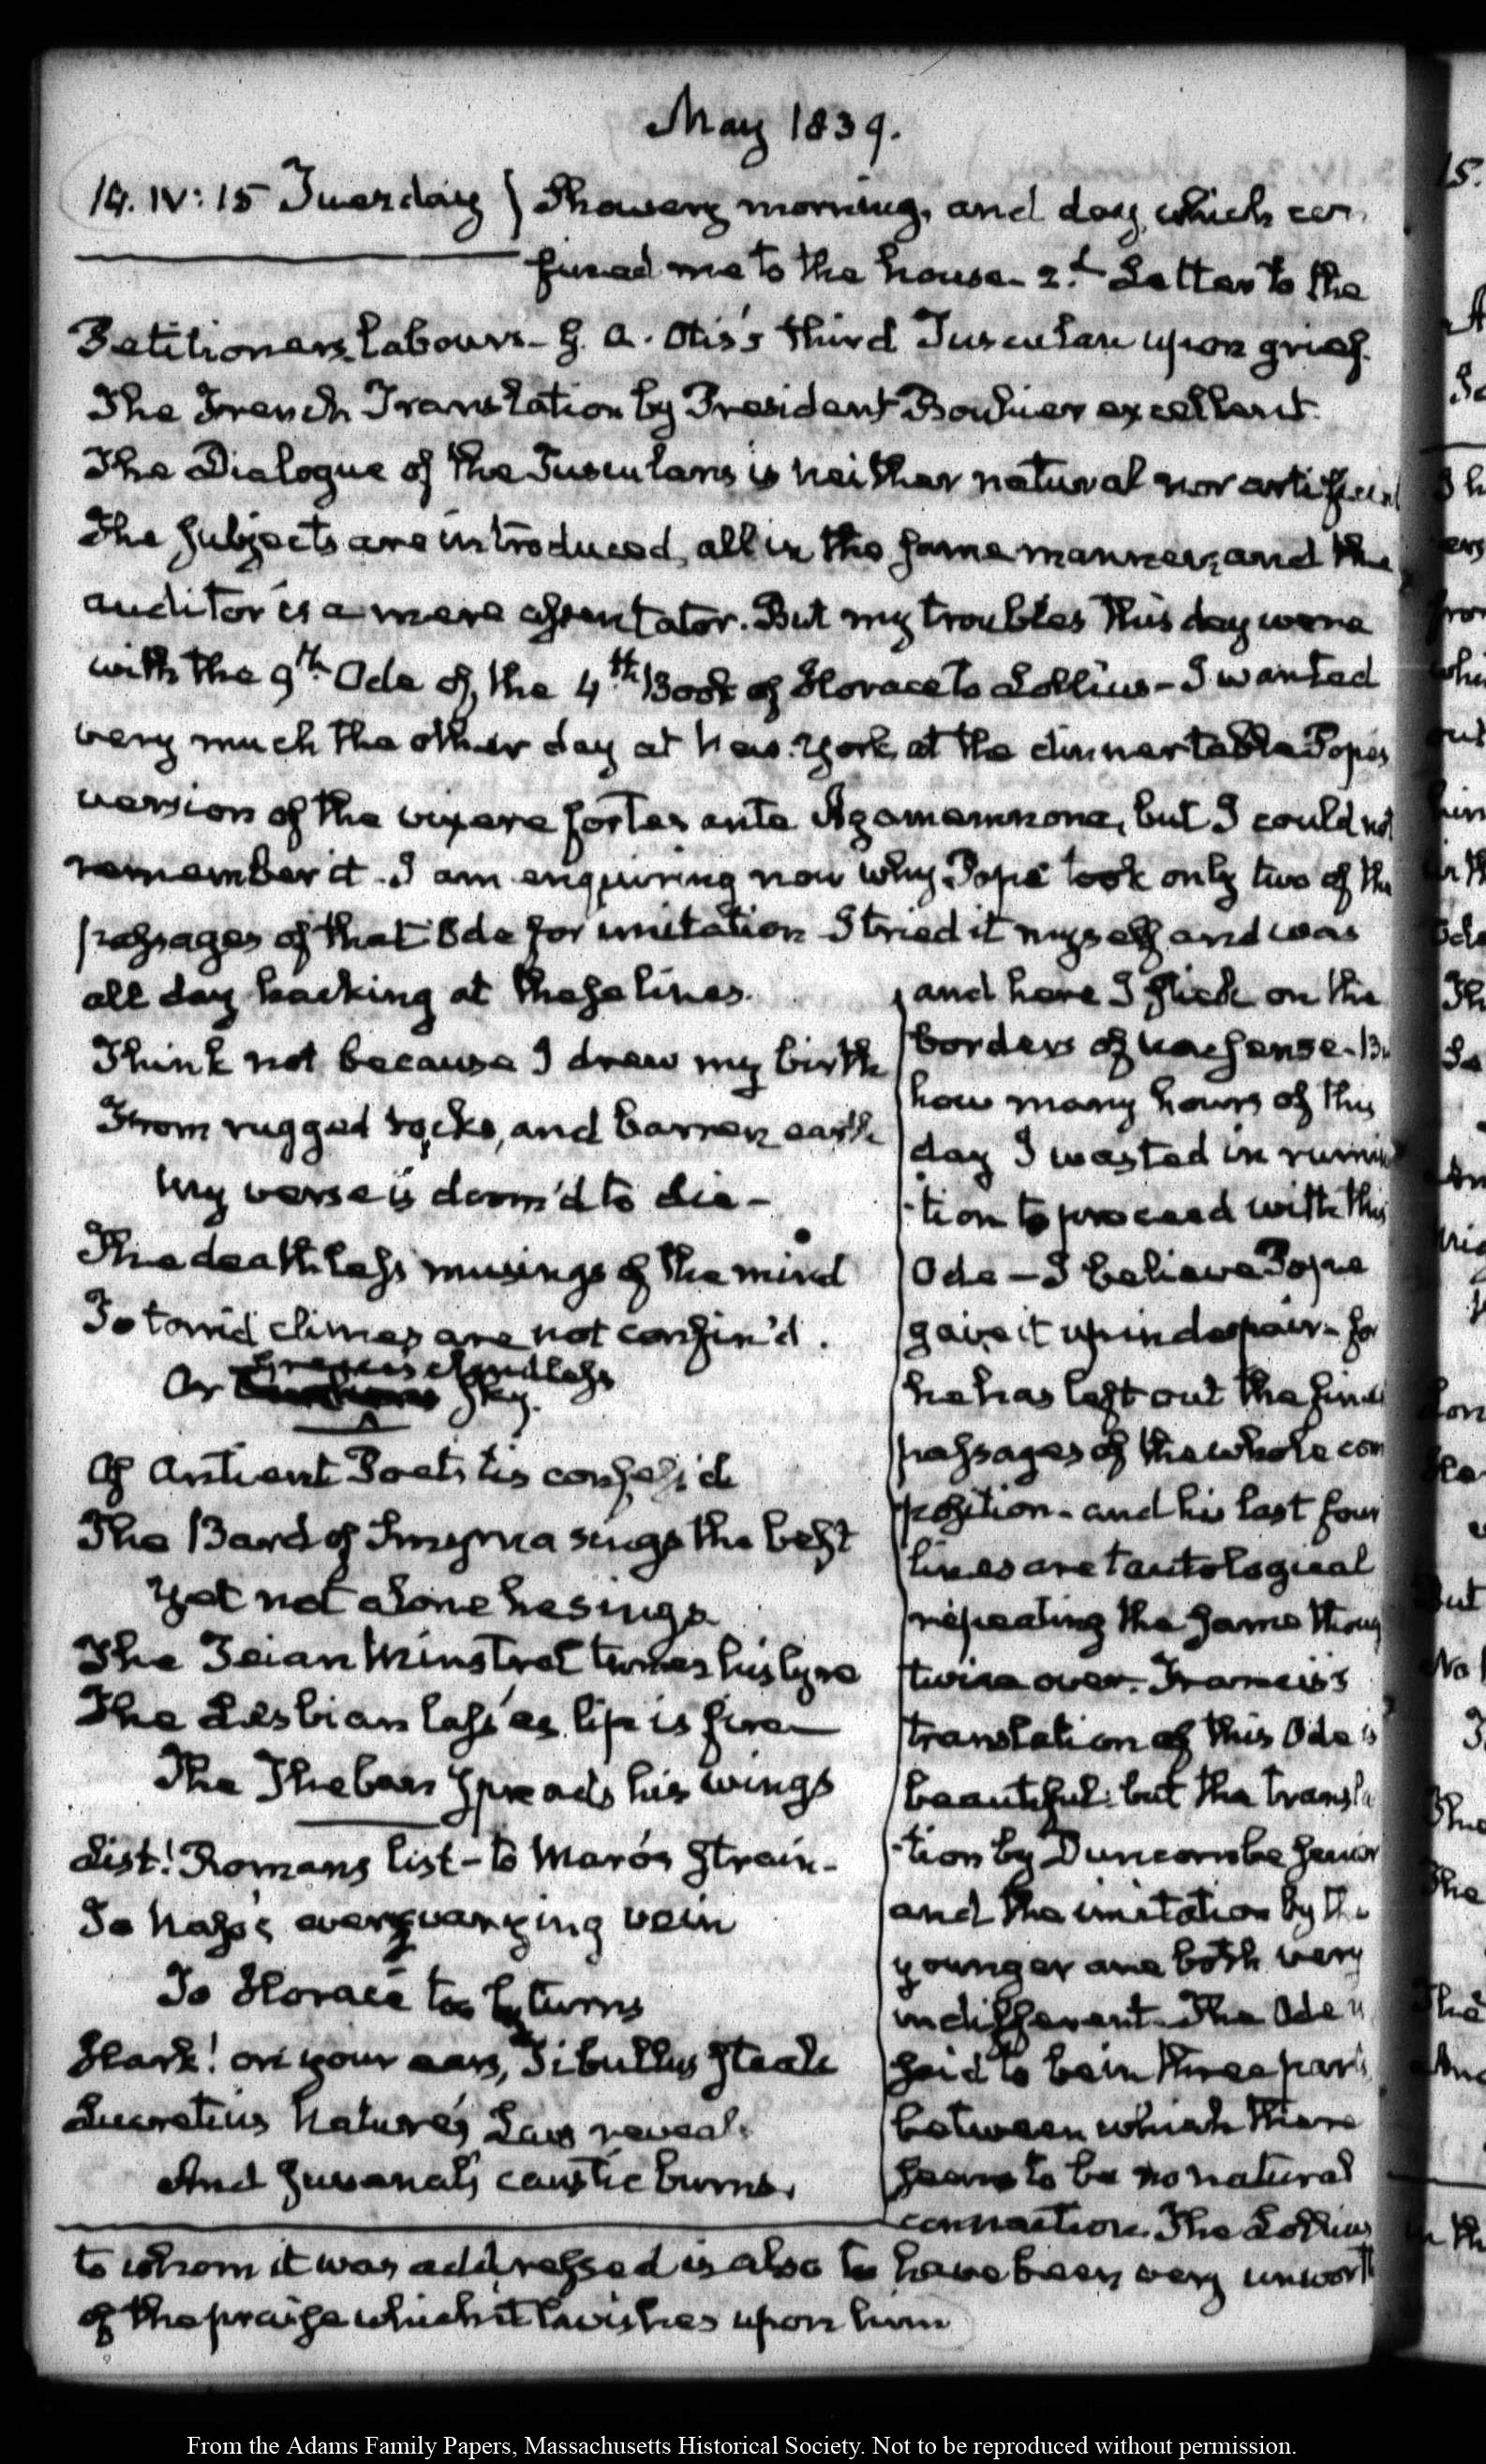 May 1839.
14. IV: 15 Tuesday } Showery morning, and day, which con
fined me to the house. 2.d Letter to the
Petitioners, labours. G. A. Otis's third Tusculan upon grief.
The French Translation by President Bouhier excellent.
The Dialogue of the Tusculans is neither natural nor artificial
The subjects are introduced, all in the same manner, and the
auditor is a mere assentator. But my troubles this day were
with the 9th Ode of the 4th Book of Horace to Lollius - I wanted
very much the other day at New York, at the dinner table Popes
version of the vixere fortes ante Agamemnona, but I could not
remember it. I am enquiring now why Pope took only two of the
passages of that Ode for imitation I tried it myself and was
all day hacking at these lines.
Think not because I drew my birth
From rugged rocks, and barren earth
My verse is doom'd to die -
The deathless musings of the mind
To torrid climes are not confin'd.
Or Grecia's cloudless sky.
Of Antient Poets tis confess'd
The Bard of Smyrna sings the best
Yet not alone he sings.
The Teian Minstrel tunes his lyre
The Lesbian lass'es lip is fire
The Theban spreads his wings
List! Romans list - to Maro's strain.
To Naso's every varying vein
To Horace too by turns
Hark! on your ears, Tibullus steals
Lucretius Nature's Law reveals
And Juvenal's caustic burns.
and here I stick on the
borders of nonsense. Bu
how many hours of this
day I wasted in rumina
tion to proceed with this
Ode - I believe Pope
gave it up in despair - for
he has left out the finest
passages of the whole com
position - and his last four
lines are tautological
repeating the same thoug
twice over. Francis's
translation of this Ode is
beautiful: but the transla
tion by Duncombe senior
and the imitation by the
younger are both very
indifferent. The Ode is
said to be in three parts
between which there
seems to be no natural
connection. The Lollius
to whom it was addressed is also to have been very unworth
of the praise which it lavishes upon him
From the Adams Family Papers, Massachusetts Historical Society. Not to be reproduced without permission.